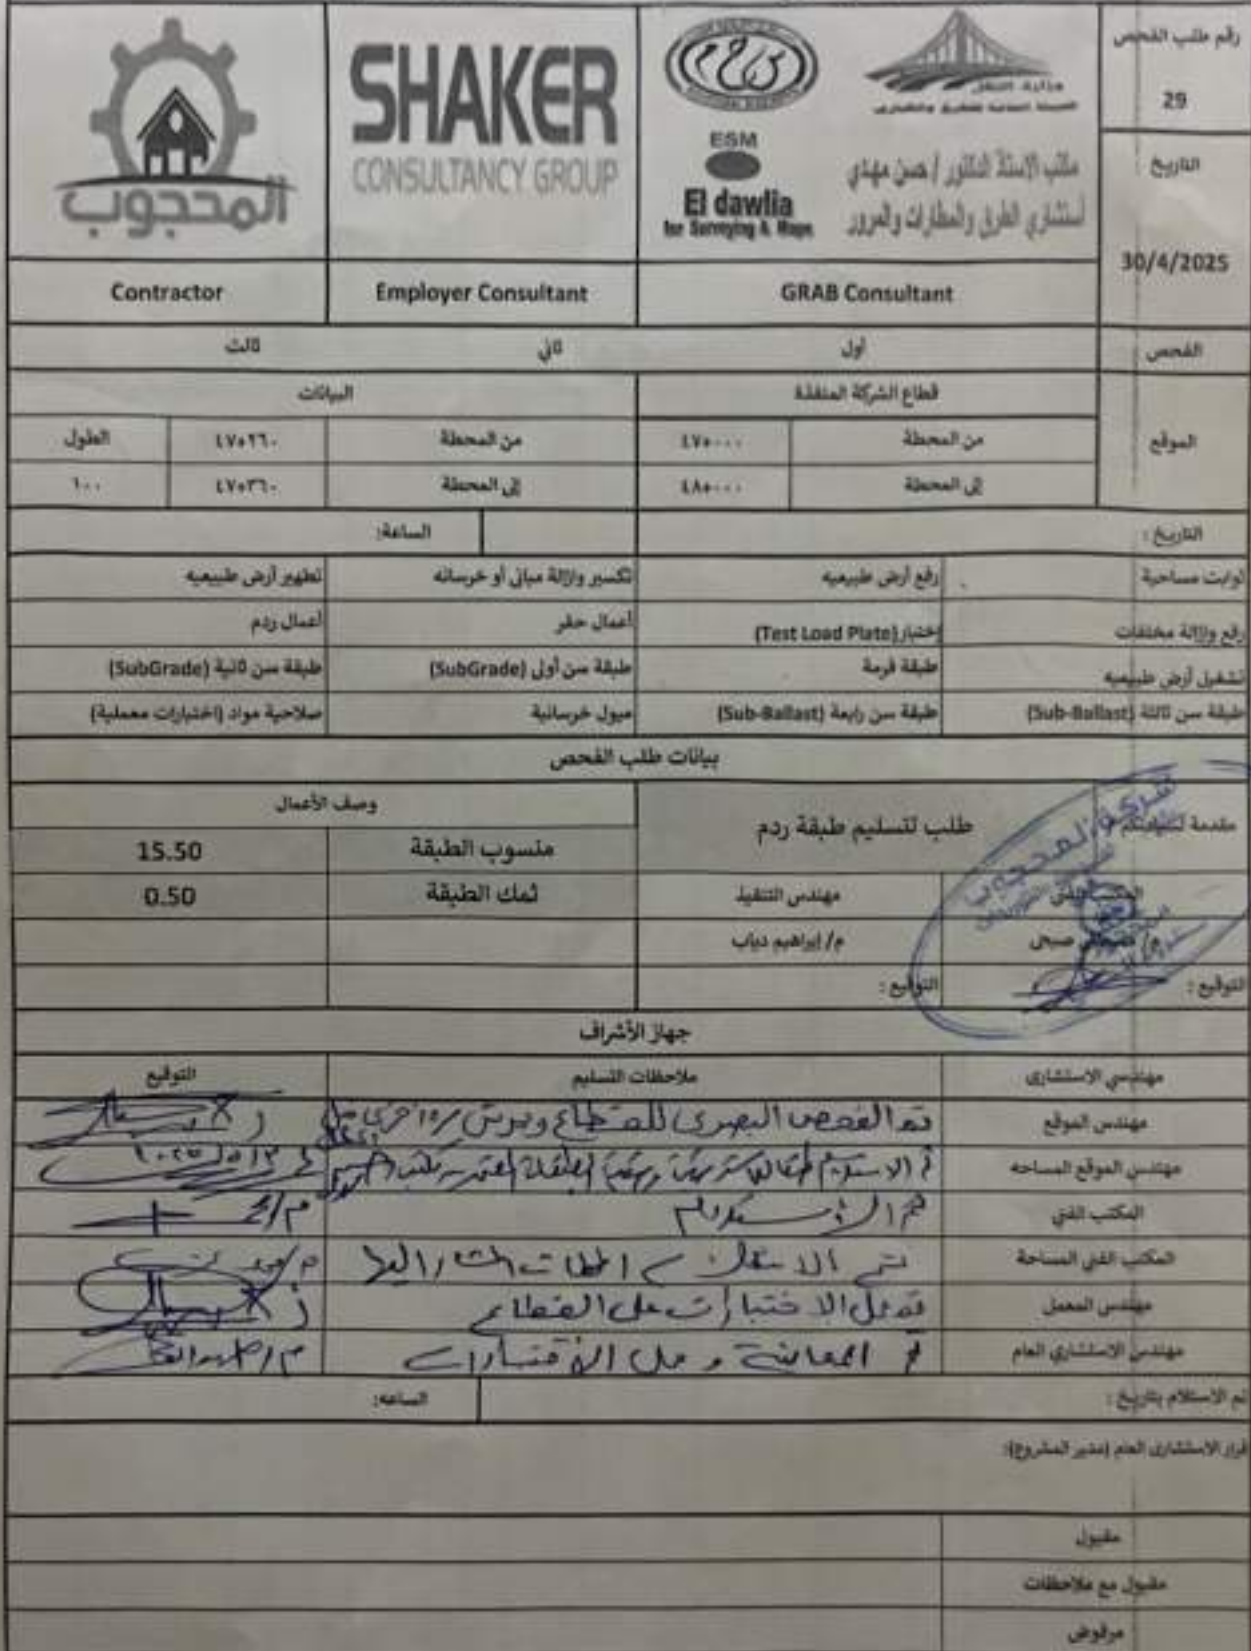 رقم طلب الفحص
29
التاريخ
30/4/2025
وزارة النقل
مكتب الاستاذ الدكتور / حسن مهدي
أستشاري الطرق والمطارات والمرور
س ح م
ESM
El dawlia
for Surveying & Maps
SHAKER
CONSULTANCY GROUP
المحجوب
GRAB Consultant
Employer Consultant
Contractor
الفحص
أول
ثاني
ثالث
الموقع
قطاع الشركة المنفذة
البيانات
من المحطة
٤٧٥٠٠٠
من المحطة
٤٧٥٢٦٠
الطول
إلى المحطة
٤٨٥٠٠٠
إلى المحطة
٤٧٥٣٦٠
١٠٠
التاريخ :
الساعة:
ثوابت مساحية
رفع أرض طبيعيه
تكسير وإزالة مباني أو خرسانه
تطهير أرض طبيعيه
رفع وإزالة مخلفات
إختبار (Test Load Plate)
أعمال حفر
أعمال ردم
تشغيل أرض طبيعيه
طبقة فرمة
طبقة سن أولى (SubGrade)
طبقة سن ثانية (SubGrade)
طبقة سن ثالثة (Sub-Ballast)
طبقة سن رابعة (Sub-Ballast)
ميول خرسانية
صلاحية مواد (اختبارات معملية)
بيانات طلب الفحص
مقدمة لسيادتكم
طلب لتسليم طبقة ردم
وصف الأعمال
منسوب الطبقة
15.50
المكتب الفني
مهندس التنفيذ
ثمك الطبقة
0.50
صبحى
م/ إبراهيم دياب
التوقيع :
التوقيع :
شركة المحجوب
جهاز الأشراف
مهندسي الاستشارى
ملاحظات التسليم
التوقيع
مهندس الموقع
تم الفحص البصرى للقطاع
مهندس الموقع المساحه
تم الاستلام
المكتب الفني
تم الاستلام
المكتب الفني المساحة
تم الاستلام
مهندس المعمل
تم عمل الاختبارات على القطاع
مهندس الاستشاري العام
تم المعاينة و عمل الاختبارات
تم الاستلام بتاريخ :
الساعه:
قرار الاستشارى العام (مدير المشروع):
مقبول
مقبول مع ملاحظات
مرفوض